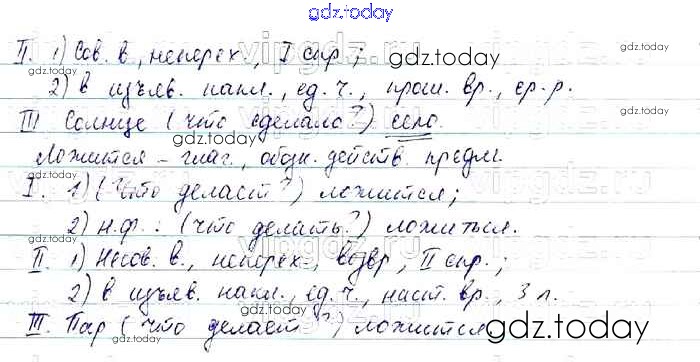 gdz.today
II. 1) Сов. в., неперех., I спр.;
2) в изъяв. накл., ед. ч., прош. вр., ср. р.
III Солнце (что сделало?) село.
Ложится – глаг., обозн. действ. предм.
I. 1) (Что делает?) ложится;
2) н.ф.: (что делать?) ложиться.
II. 1) Несов. в., неперех., возвр., II спр.;
2) в изъяв. накл., ед. ч., наст. вр., 3 л.
III. Пар (что делает?) ложится.
gdz.today